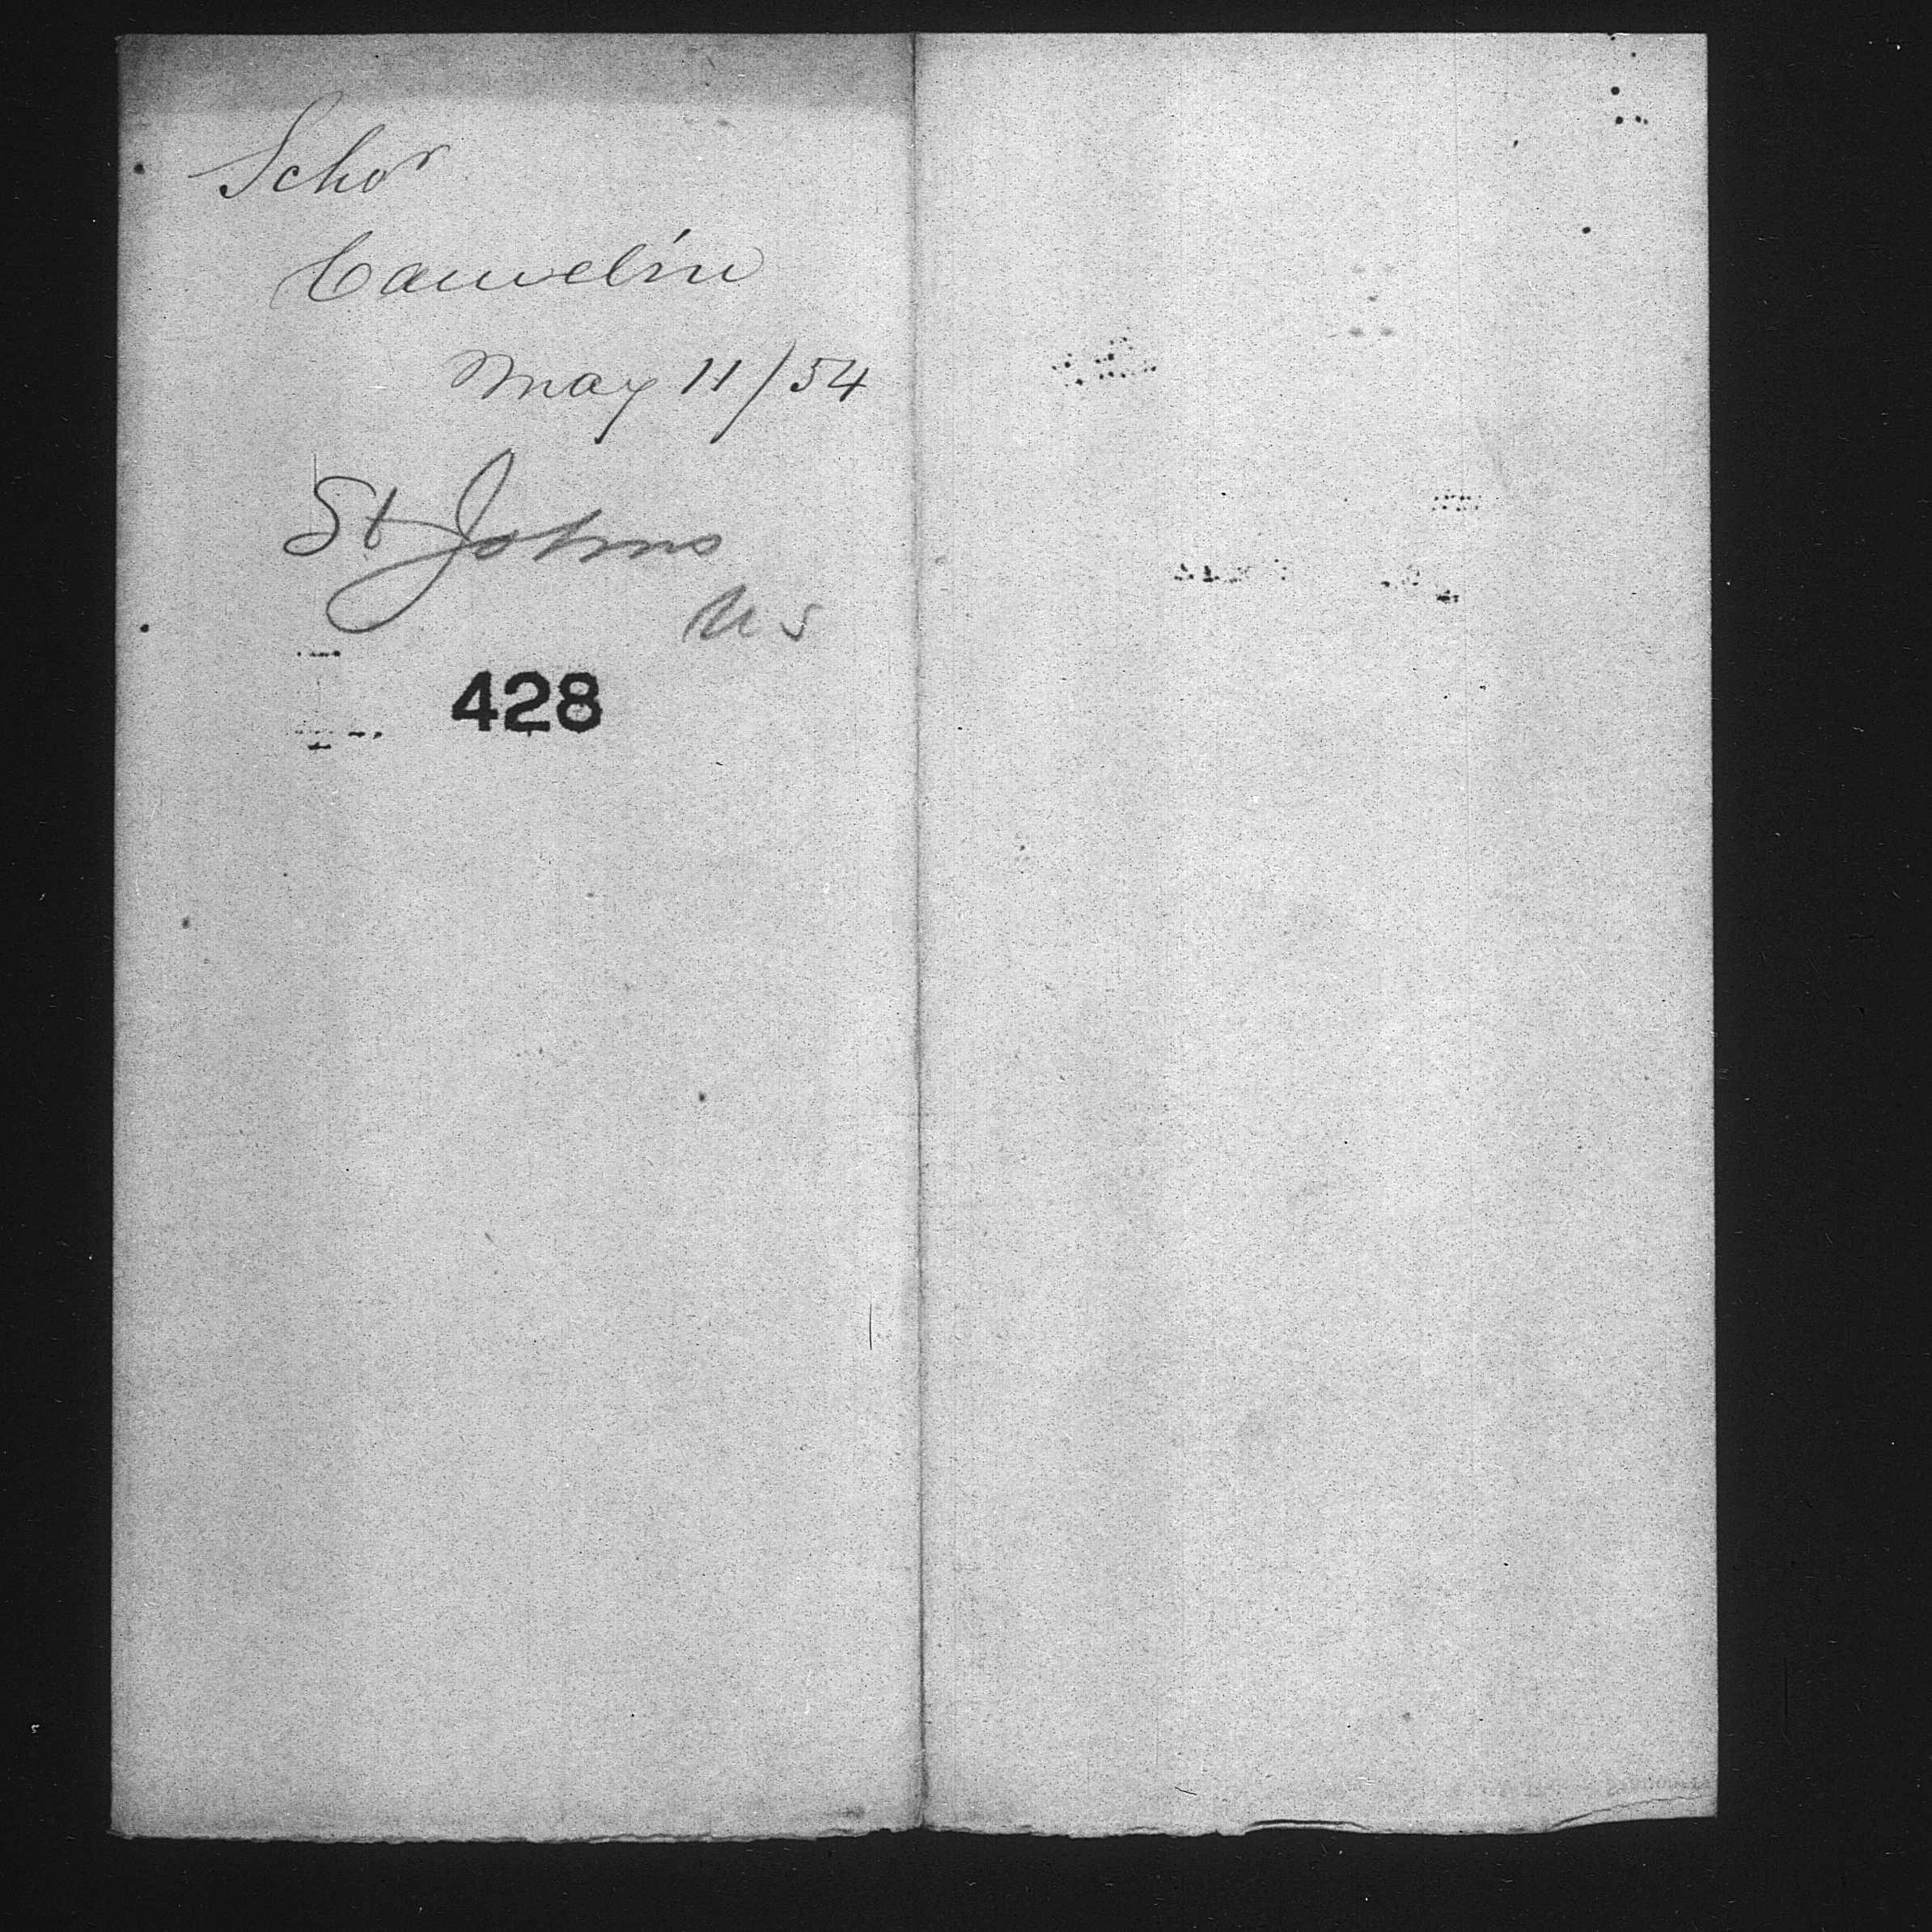 Schor
Camelin
May 11/54
St Johns
428